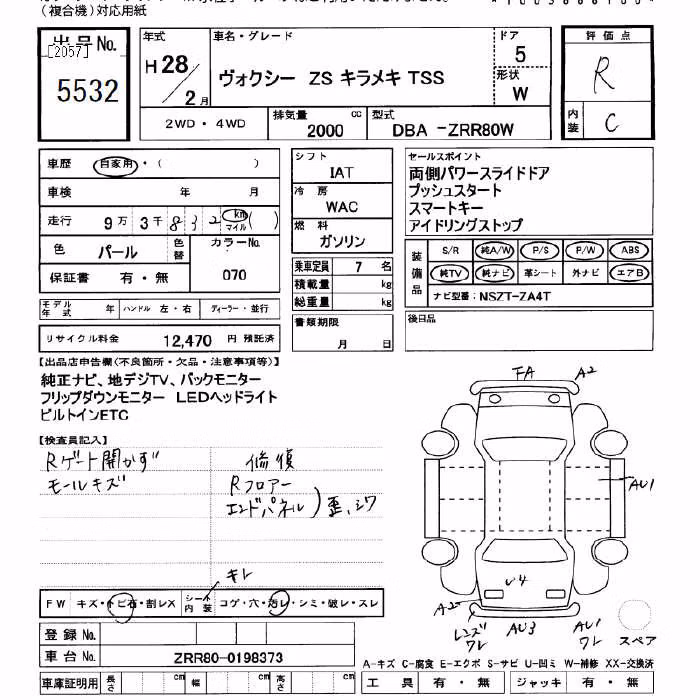 （複合機）対応用紙
出品No.
[2057]
5532
年式
H28/2月
車名・グレード
ヴォクシー ZS キラメキ TSS
ドア
5
形状
W
評価点
R
内装
C
2WD・4WD
排気量
2000
cc
型式
DBA -ZRR80W
車歴
自家用・（ ）
車検 年 月
走行 9万3千832 km マイル（ ）
色 パール
色替
カラーNo.
070
保証書 有・無
モデル年式 年
ハンドル 左・右
ディーラー・並行
リサイクル料金 12,470 円 預託済
シフト
IAT
冷房
WAC
燃料
ガソリン
乗車定員 7 名
積載量 kg
総重量 kg
書類期限
月 日
セールスポイント
両側パワースライドドア
プッシュスタート
スマートキー
アイドリングストップ
装備品
S/R 純A/W P/S P/W ABS
純TV 純ナビ 革シート 外ナビ エアB
ナビ型番： NSZT-ZA4T
後日品
【出品店申告欄（不良箇所・欠品・注意事項等）】
純正ナビ、地デジTV、バックモニター
フリップダウンモニター LEDヘッドライト
ビルトインETC
【検査員記入】
Rゲート開かず
モールキズ
修復
Rフロアー
エンドパネル）歪、シワ
FA
A2
AU1
U4
A2
レンズワレ
AU3
AU1
ワレ
スペア
キレ
FW キズ・トビ石・割レX
シート内装
コゲ・穴・汚レ・シミ・破レ・スレ
登録No.
車台No. ZRR80-0198373
車庫証明用 長さ cm 幅 cm 高さ cm
A-キズ C-腐食 E-エクボ S-サビ U-凹ミ W-補修 XX-交換済
工具 有・無 ジャッキ 有・無